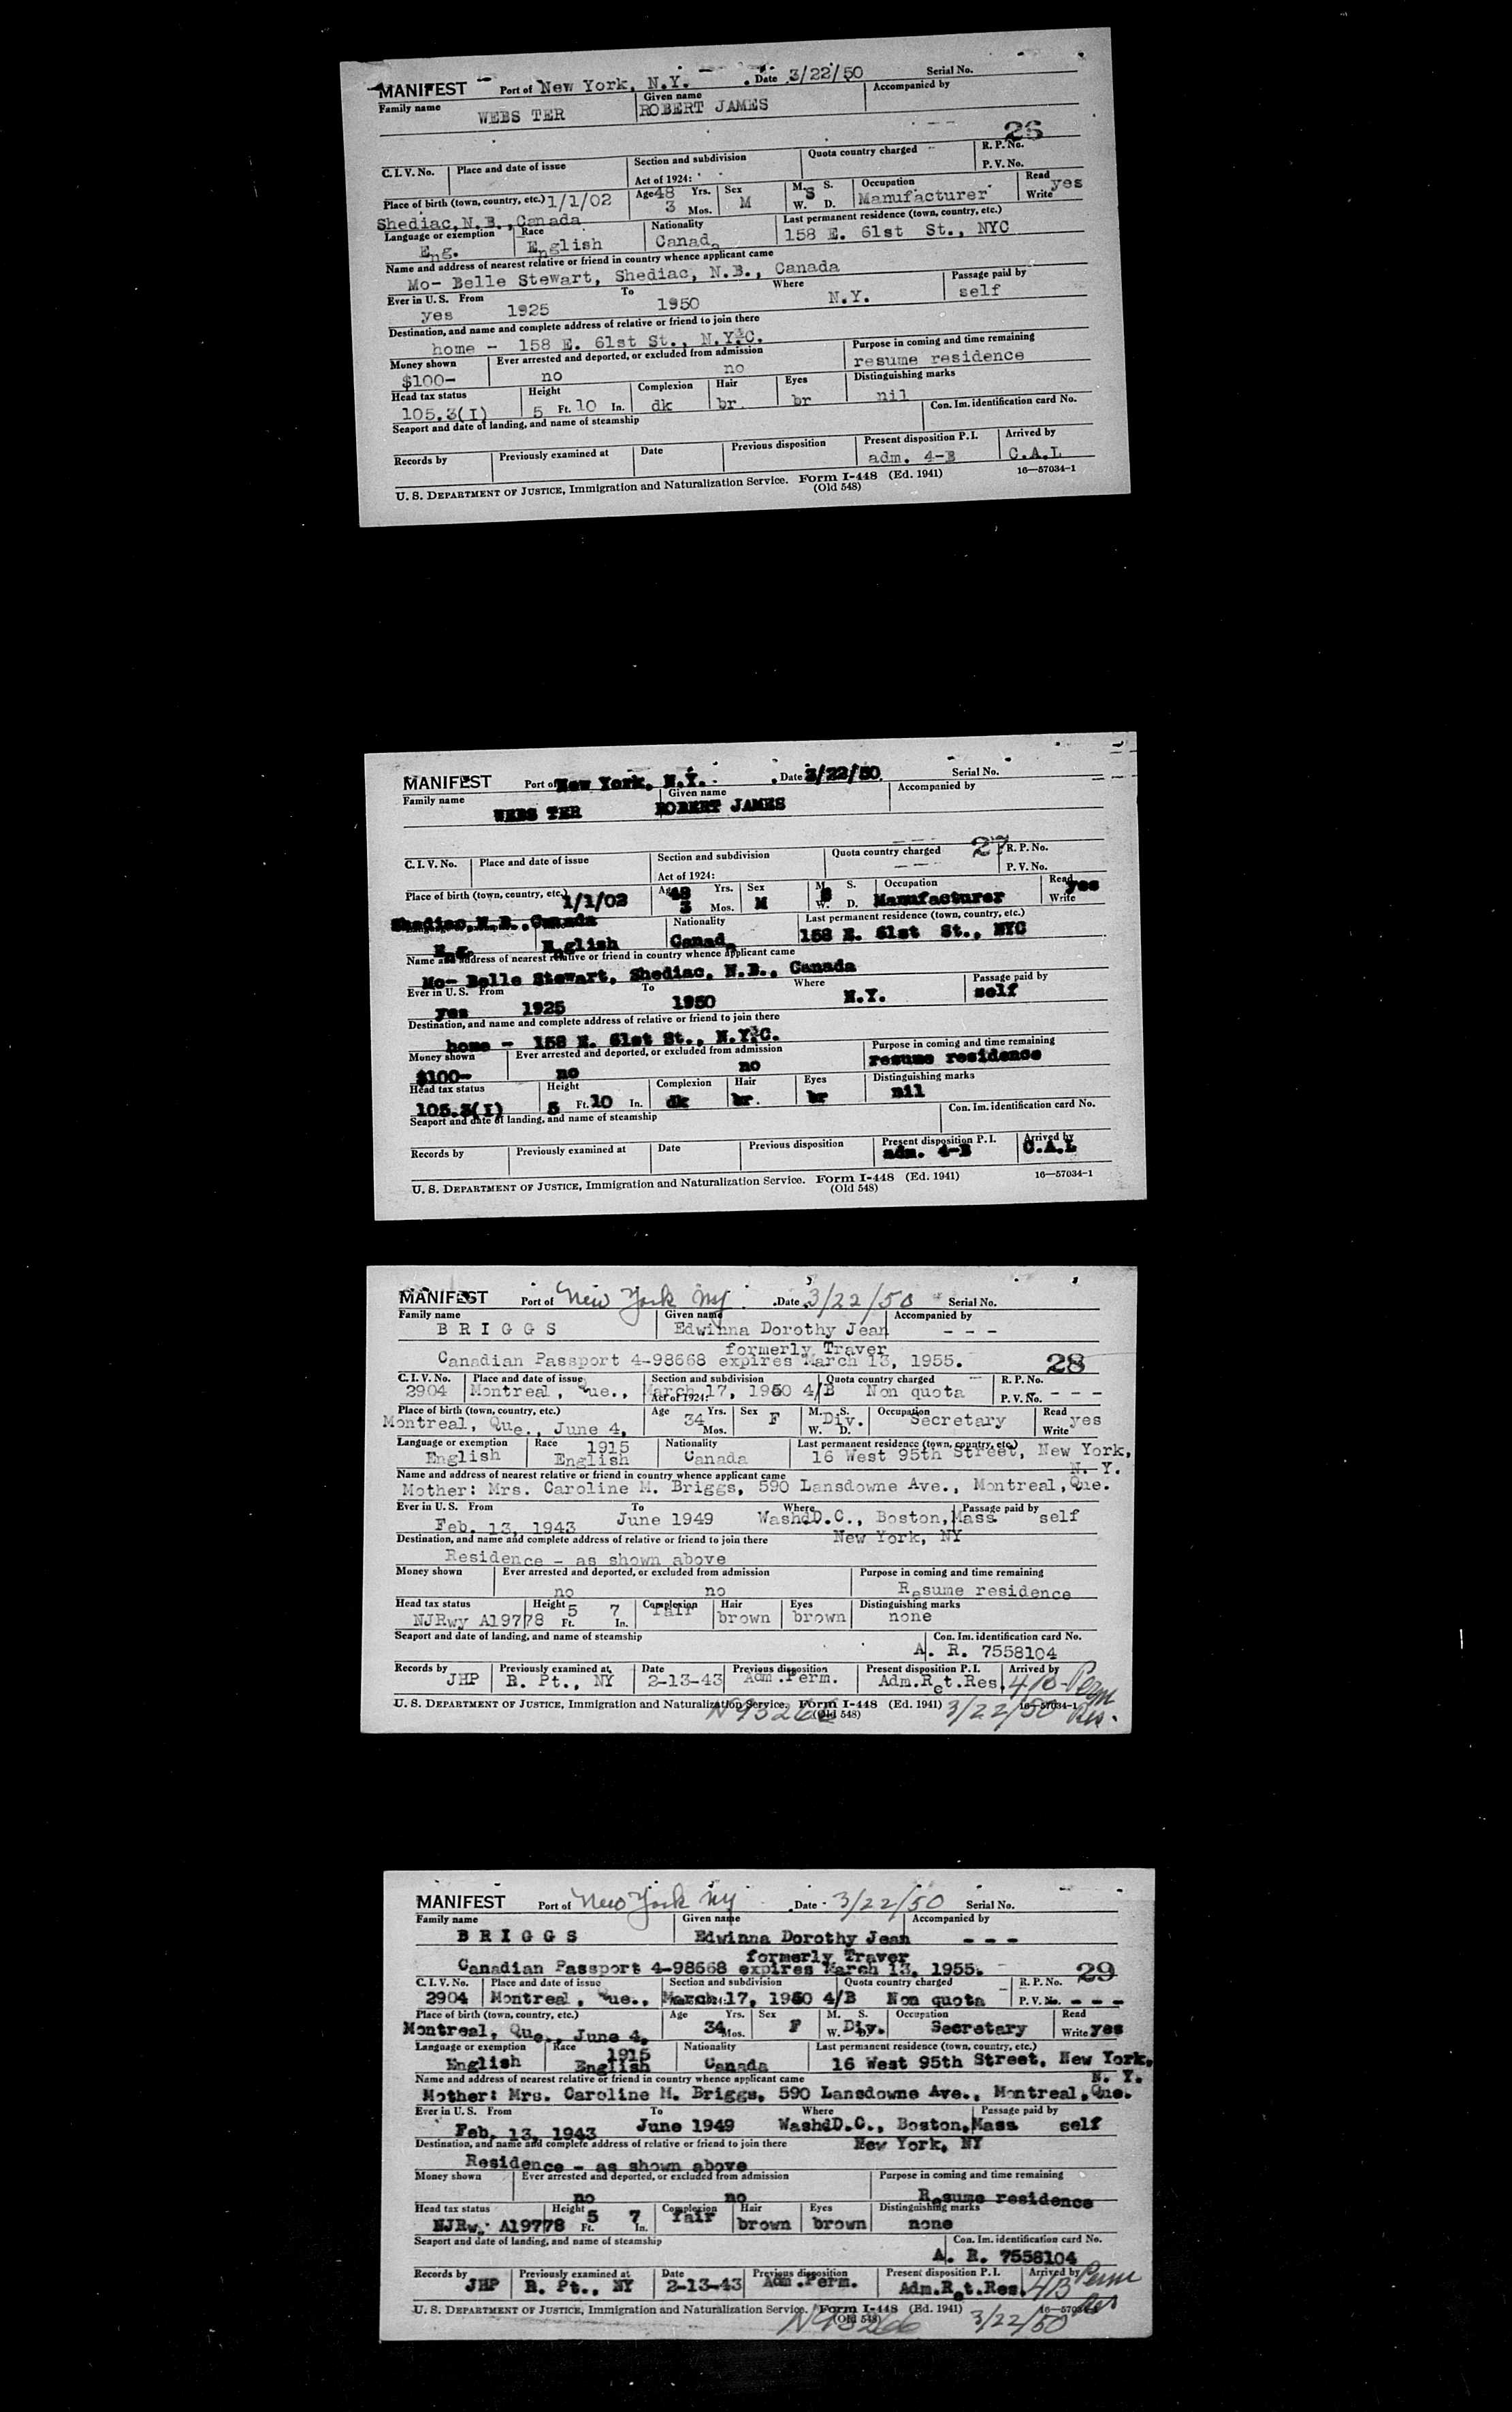 MANIFEST Port of New York, N.Y. Date 3/22/50 Serial No.
Family name Given name Accompanied by
WEBS TER ROBERT JAMES
26
C. I. V. No. Place and date of issue Section and subdivision Quota country charged R. P. No.
Act of 1924: P. V. No.
Place of birth (town, country, etc.) 1/1/02 Age 48 Yrs. Sex M. S. Occupation Read yes
3 Mos. M S W. D. Manufacturer Write
Shediac, N.B., Canada
Language or exemption Race Nationality Last permanent residence (town, country, etc.)
Eng. English Canad. 158 E. 61st St., NYC
Name and address of nearest relative or friend in country whence applicant came
Mo- Belle Stewart, Shediac, N.B., Canada
Ever in U. S. From To Where Passage paid by
yes 1925 1950 N.Y. self
Destination, and name and complete address of relative or friend to join there
home - 158 E. 61st St., N.Y.C.
Money shown Ever arrested and deported, or excluded from admission Purpose in coming and time remaining
$100- no no resume residence
Head tax status Height Complexion Hair Eyes Distinguishing marks
105.3(I) 5 Ft. 10 In. dk br. br nil
Seaport and date of landing, and name of steamship Con. Im. identification card No.
Records by Previously examined at Date Previous disposition Present disposition P. I. Arrived by
adm. 4-B C.A.L
U. S. DEPARTMENT OF JUSTICE, Immigration and Naturalization Service. Form I-448 (Ed. 1941) 16—57034-1
(Old 548)
MANIFEST Port of New York, N.Y. Date 3/22/50 Serial No.
Family name Given name Accompanied by
WEBS TER ROBERT JAMES
C. I. V. No. Place and date of issue Section and subdivision Quota country charged 27 R. P. No.
Act of 1924: P. V. No.
Place of birth (town, country, etc.) 1/1/02 Age 48 Yrs. Sex M. S. Occupation Read yes
3 Mos. M S W. D. Manufacturer Write
Shediac, N.B., Canada
Nationality Last permanent residence (town, country, etc.)
Eng. English Canad. 158 E. 61st St., NYC
Name and address of nearest relative or friend in country whence applicant came
Mo- Belle Stewart, Shediac, N.B., Canada
Ever in U. S. From To Where Passage paid by
yes 1925 1950 N.Y. self
Destination, and name and complete address of relative or friend to join there
home - 158 E. 61st St., N.Y.C.
Money shown Ever arrested and deported, or excluded from admission Purpose in coming and time remaining
$100- no no resume residence
Head tax status Height Complexion Hair Eyes Distinguishing marks
105.3(I) 5 Ft. 10 In. dk br. br nil
Seaport and date of landing, and name of steamship Con. Im. identification card No.
Records by Previously examined at Date Previous disposition Present disposition P. I. Arrived by
adm. 4-B C.A.L
U. S. DEPARTMENT OF JUSTICE, Immigration and Naturalization Service. Form I-448 (Ed. 1941) 16—57034-1
(Old 548)
MANIFEST Port of New York NY. Date 3/22/50 Serial No.
Family name Given name Accompanied by
B R I G G S Edwinna Dorothy Jean - - -
formerly Traver
Canadian Passport 4-98668 expires March 13, 1955. 28
C. I. V. No. Place and date of issue Section and subdivision Quota country charged R. P. No.
2904 Montreal, Que., March 17, 1950 4/B Non quota P. V. No. - - -
Act of 1924:
Place of birth (town, country, etc.) Age 34 Yrs. Sex F M. S. Div. Occupation Read yes
Montreal, Que., June 4, Mos. W. D. Secretary Write
Language or exemption Race 1915 Nationality Last permanent residence (town, country, etc.)
English English Canada 16 West 95th Street, New York,
N. Y.
Name and address of nearest relative or friend in country whence applicant came
Mother: Mrs. Caroline M. Briggs, 590 Lansdowne Ave., Montreal, Que.
Ever in U. S. From To Where Passage paid by
Feb. 13, 1943 June 1949 WashdD.C., Boston, Mass self
Destination, and name and complete address of relative or friend to join there New York, NY
Residence - as shown above
Money shown Ever arrested and deported, or excluded from admission Purpose in coming and time remaining
no no Resume residence
Head tax status Height Complexion Hair Eyes Distinguishing marks
NJRwy A19778 5 Ft. 7 In. fair brown brown none
Seaport and date of landing, and name of steamship Con. Im. identification card No.
A. R. 7558104
Records by Previously examined at Date Previous disposition Present disposition P. I. Arrived by
JHP R. Pt., NY 2-13-43 Adm.Perm. Adm.Ret.Res. 4/B-Perm
Res.
U. S. DEPARTMENT OF JUSTICE, Immigration and Naturalization Service. Form I-448 (Ed. 1941) 3/22/50 16—57034-1
(Old 548)
MANIFEST Port of New York NY Date 3/22/50 Serial No.
Family name Given name Accompanied by
B R I G G S Edwinna Dorothy Jean - - -
formerly Traver
Canadian Passport 4-98668 expires March 13, 1955. 29
C. I. V. No. Place and date of issue Section and subdivision Quota country charged R. P. No.
2904 Montreal, Que., March 17, 1950 4/B Non quota P. V. No. - - -
Place of birth (town, country, etc.) Age 34 Yrs. Sex F M. S. Div. Occupation Read
Montreal, Que., June 4, Mos. W. D. Secretary Write yes
Language or exemption Race 1915 Nationality Last permanent residence (town, country, etc.)
English English Canada 16 West 95th Street, New York,
N. Y.
Name and address of nearest relative or friend in country whence applicant came
Mother: Mrs. Caroline M. Briggs, 590 Lansdowne Ave., Montreal, Que.
Ever in U. S. From To Where Passage paid by
Feb. 13, 1943 June 1949 WashdD.C., Boston, Mass self
Destination, and name and complete address of relative or friend to join there New York, NY
Residence - as shown above
Money shown Ever arrested and deported, or excluded from admission Purpose in coming and time remaining
no no Resume residence
Head tax status Height Complexion Hair Eyes Distinguishing marks
NJRwy A19778 5 Ft. 7 In. fair brown brown none
Seaport and date of landing, and name of steamship Con. Im. identification card No.
A. R. 7558104
Records by Previously examined at Date Previous disposition Present disposition P. I. Arrived by
JHP R. Pt., NY 2-13-43 Adm.Perm. Adm.Ret.Res. 4/B Perm
Res
U. S. DEPARTMENT OF JUSTICE, Immigration and Naturalization Service. Form I-448 (Ed. 1941)
(Old 548) 3/22/50